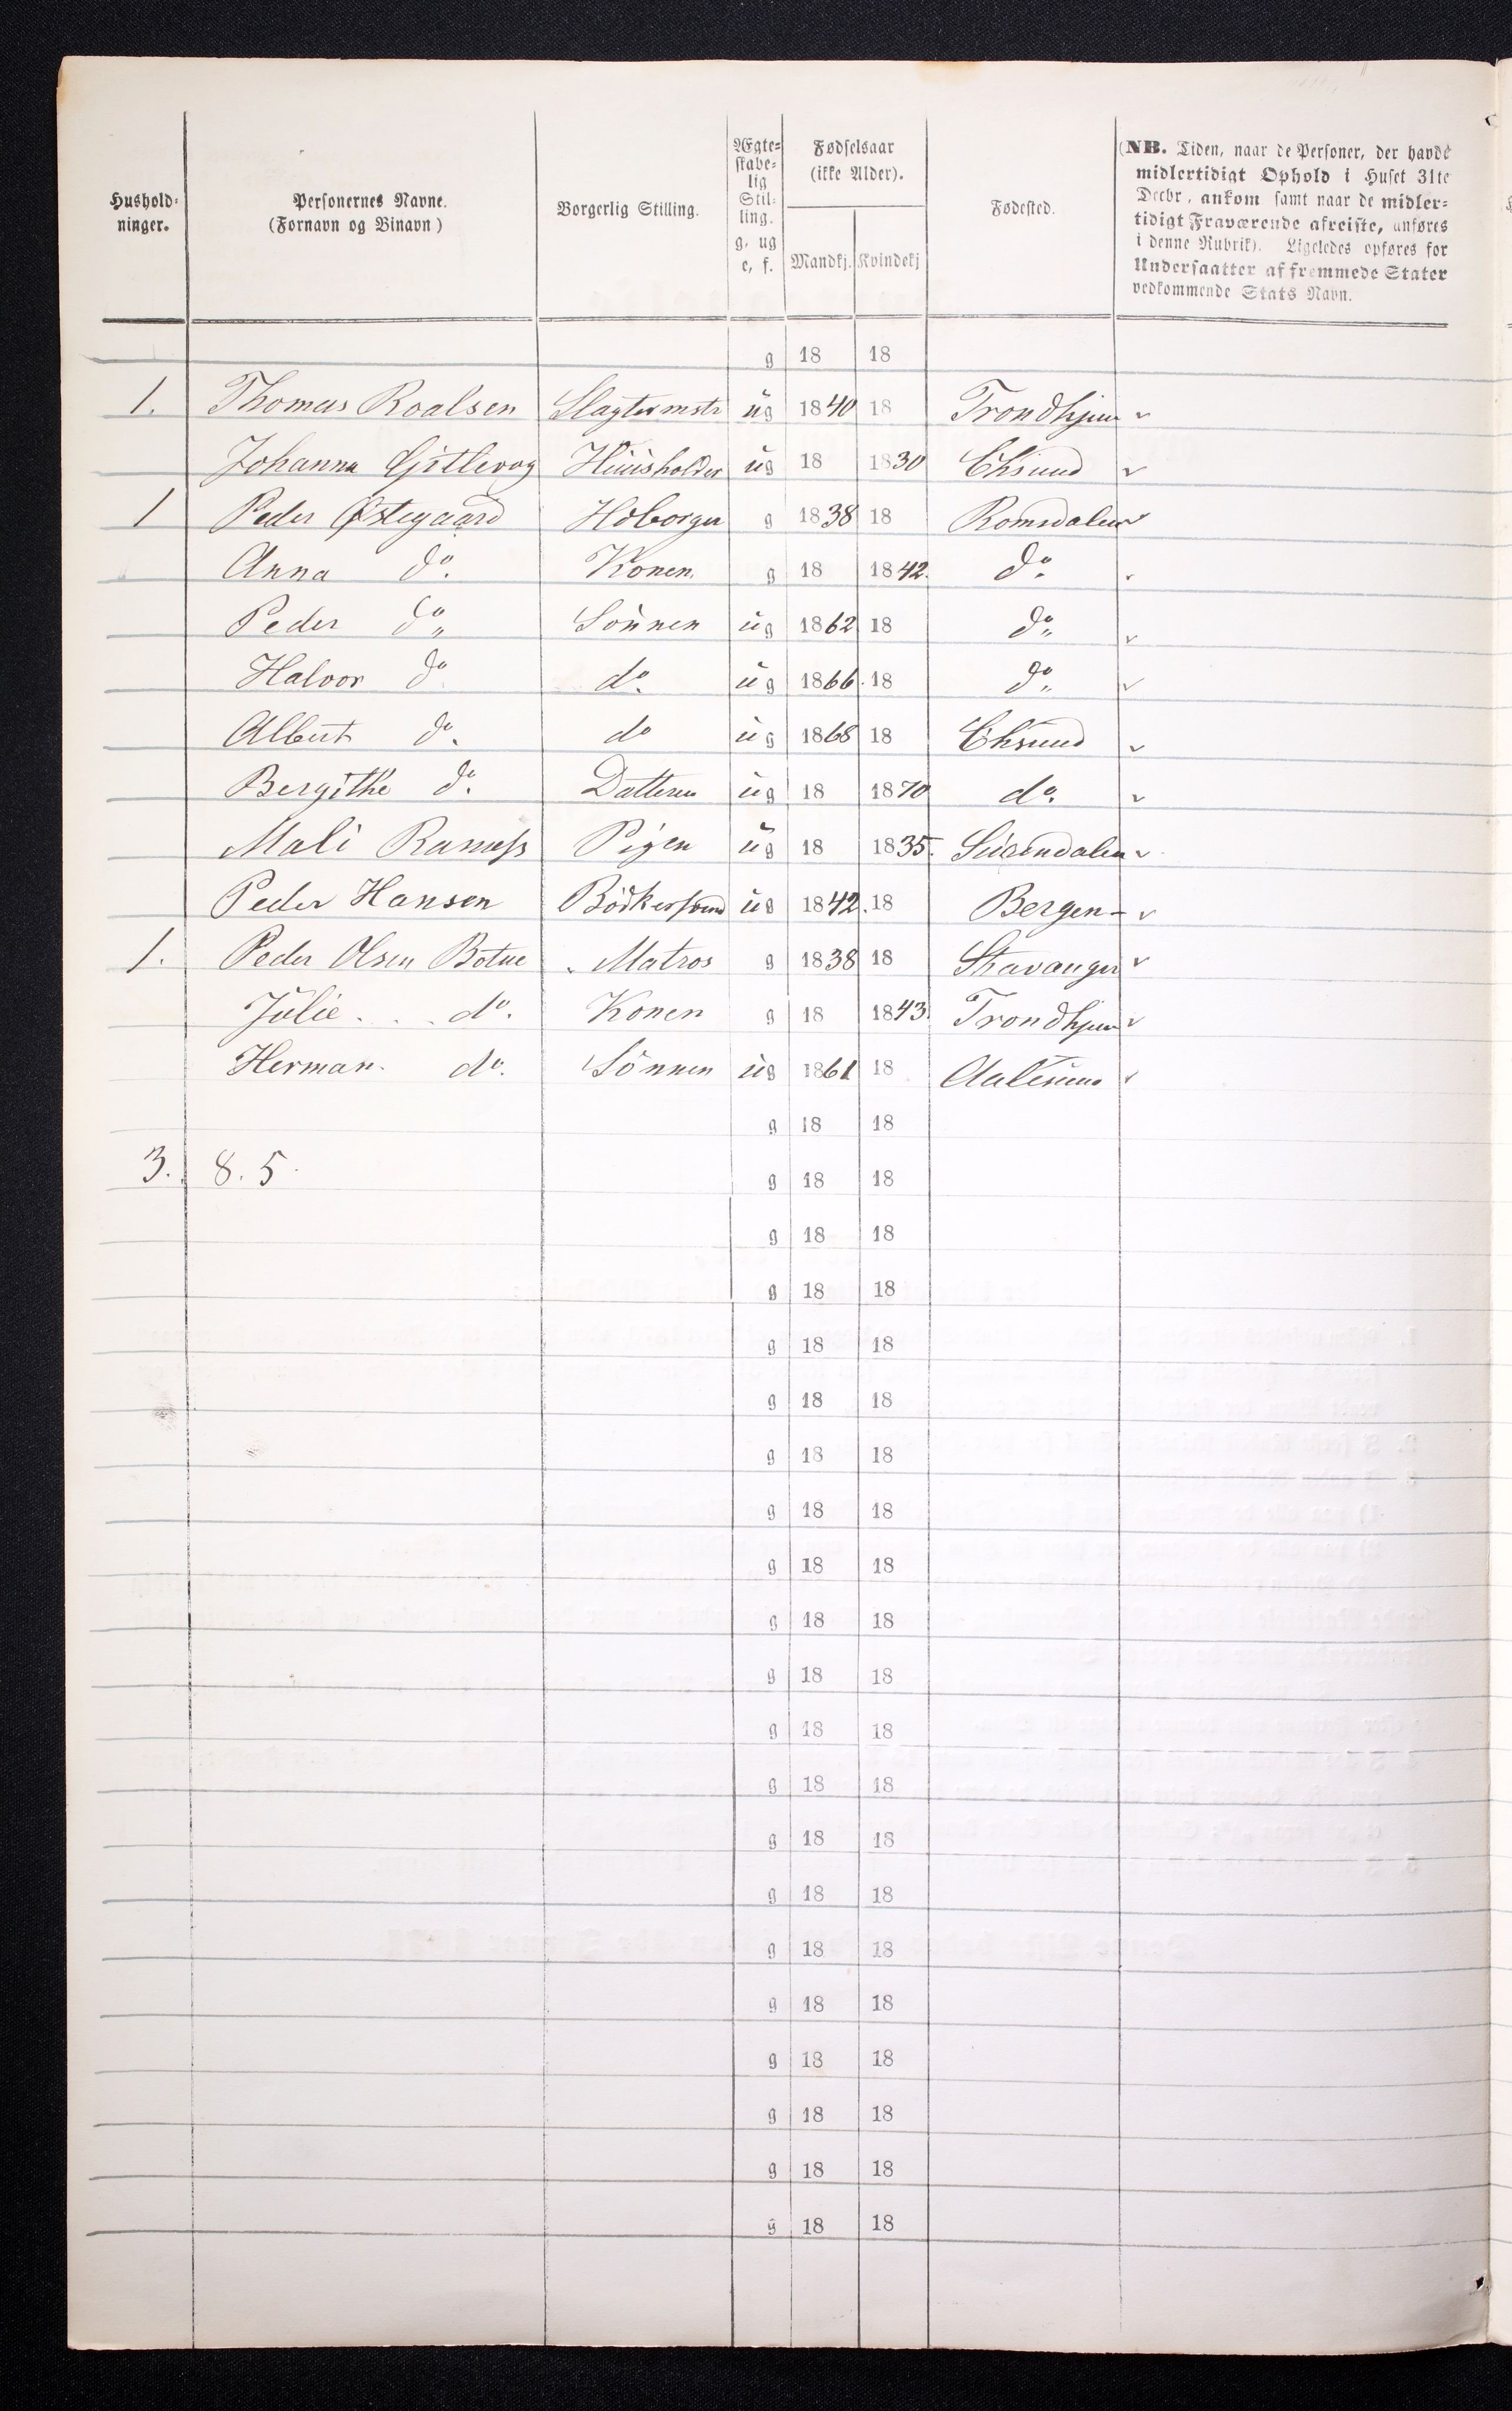 Hushold-
ninger.
Personernes Navne.
(Fornavn og Binavn)
Borgerlig Stilling.
Ægte-
skabe-
lig
Stil-
ling.
g, ug
e, f.
Fødselsaar
(ikke Alder).
Mandkj. Kvindekj
Fødested.
(NB. Tiden, naar de Personer, der havde
midlertidigt Ophold i Huset 31te
Decbr, ankom samt naar de midler-
tidigt Fraværende afreiste, anføres
i denne Rubrik). Ligeledes opføres for
Undersaatter af fremmede Stater
vedkommende Stats Navn.
g 18 18
1. Thomas Roalsen Slagtermstr ug 1840 18 Trondhjem
Johanna Huusholder ug 18 1830 Chsund
1 Peder Østegaard Hdborger g 1838 18 Romsdalen
Anna do. Konen g 18 1842. do.
Peder do Sønnen ug 1862 18 do
Halvor do do. ug 1866. 18 do
Albert do. do ug 1868 18 Chsund
Bergithe do. Datteren ug 18 1870 do.
Mali Pigen ug 18 1835. Surendalen
Peder Hansen Bødkersvend ug 1842. 18 Bergen-
1. Peder Olsen Botne Matros g 1838 18 Stavanger
Julie . . . do. Konen g 18 1843. Trondhjem
Herman. do. Sönnen ug 1861 18 Aalesund
g 18 18
3. 8. 5. g 18 18
g 18 18
g 18 18
g 18 18
g 18 18
g 18 18
g 18 18
g 18 18
g 18 18
g 18 18
g 18 18
g 18 18
g 18 18
g 18 18
g 18 18
g 18 18
g 18 18
g 18 18
g 18 18
g 18 18